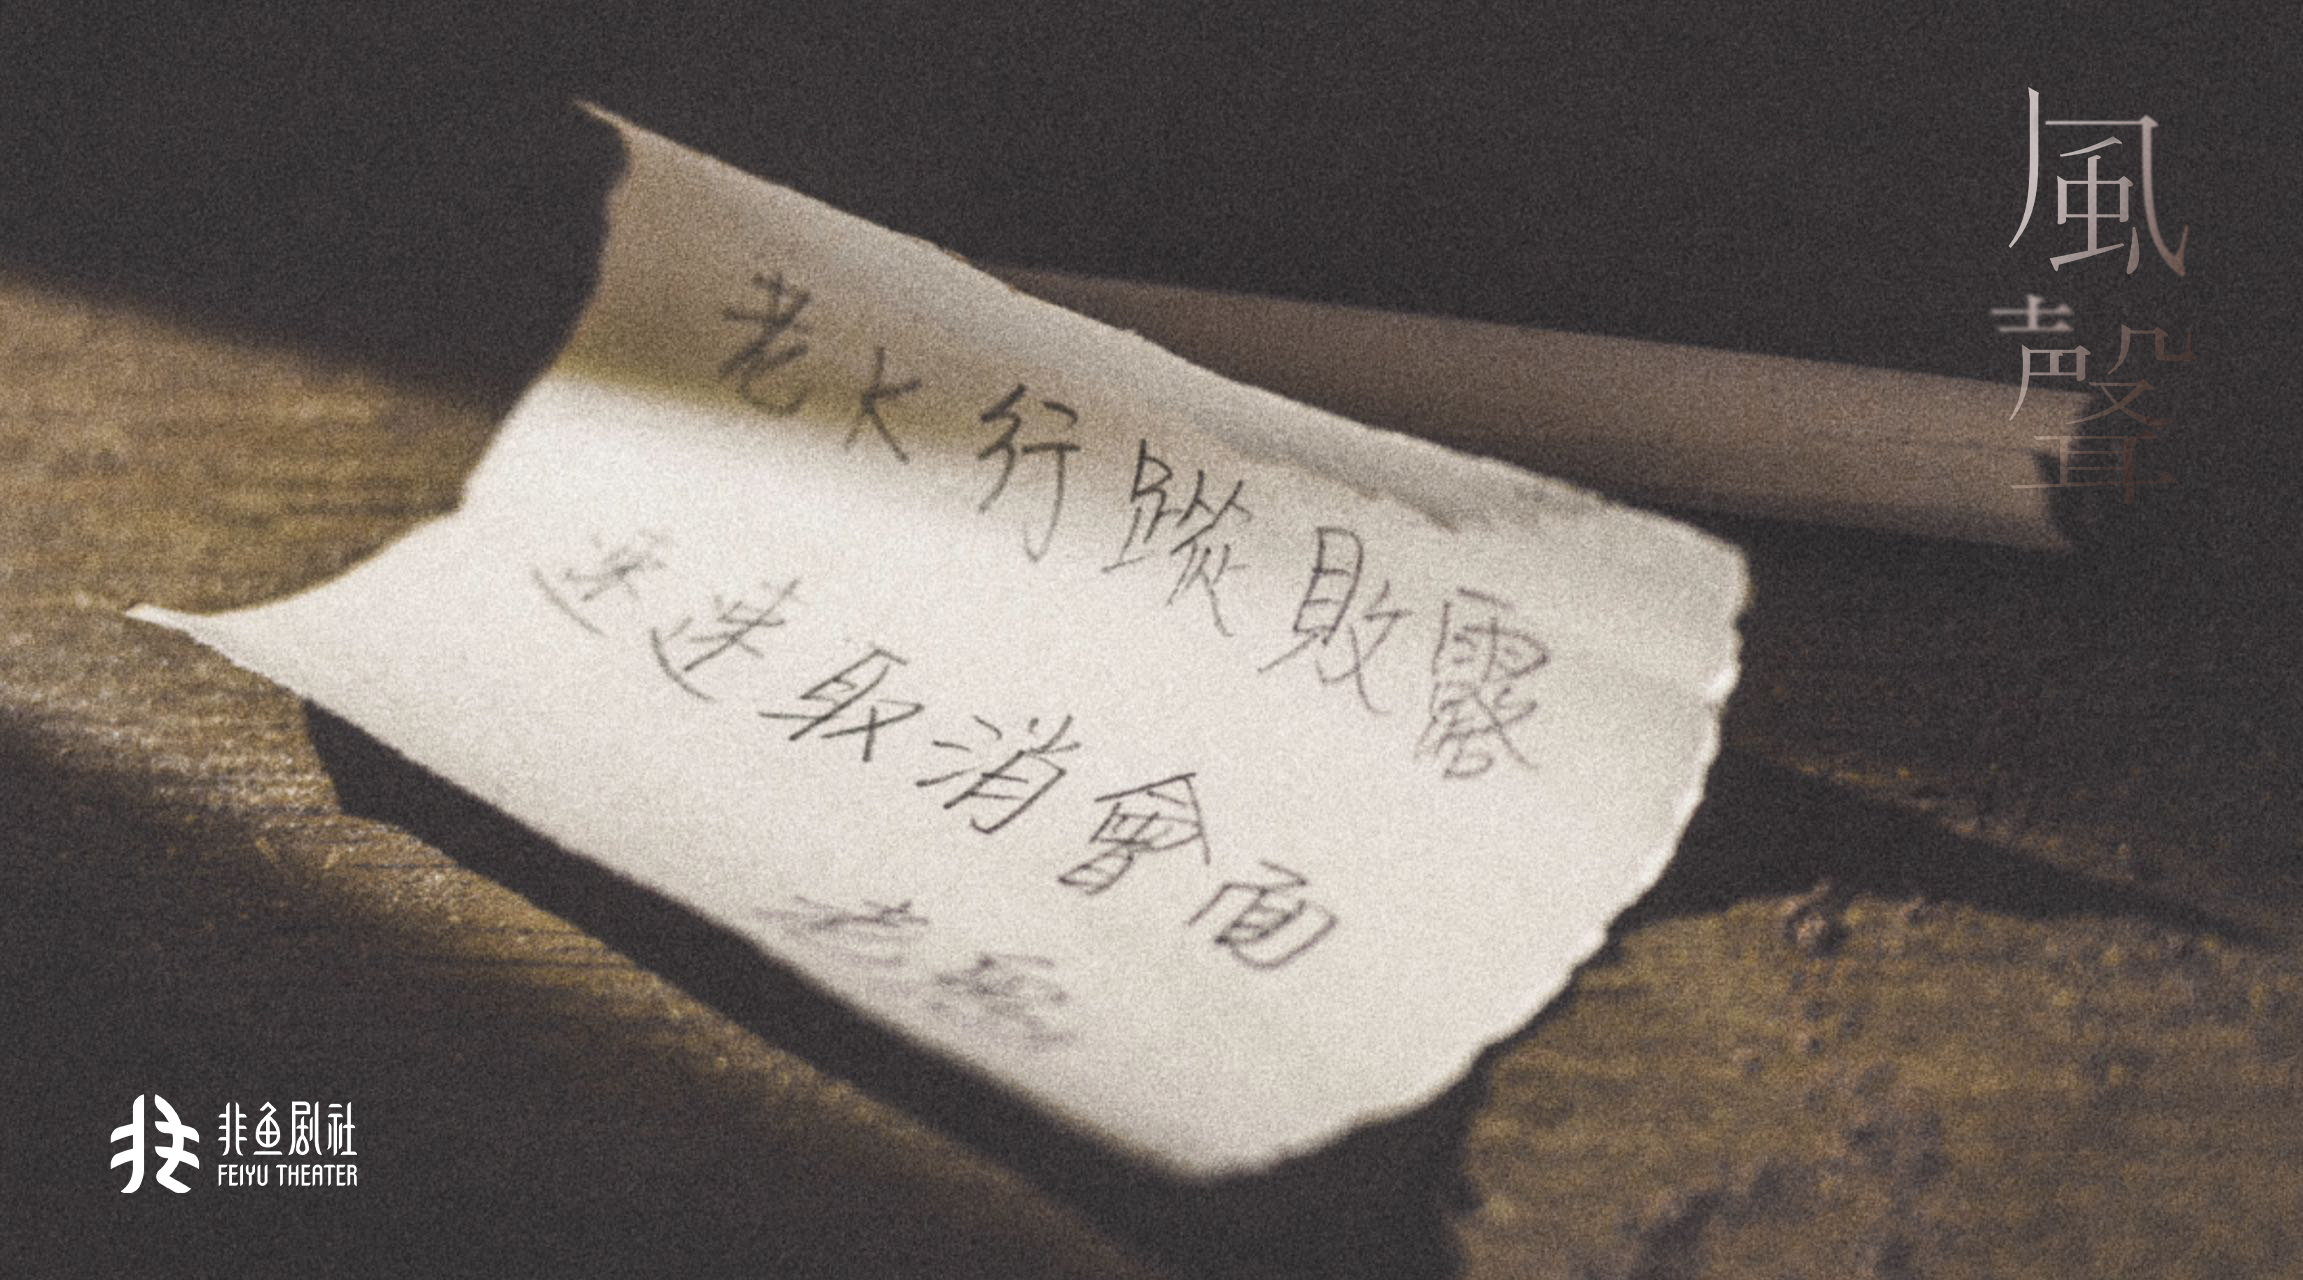 風聲
老K行蹤敗露
速取消會面
老
非鱼剧社
FEIYU THEATER